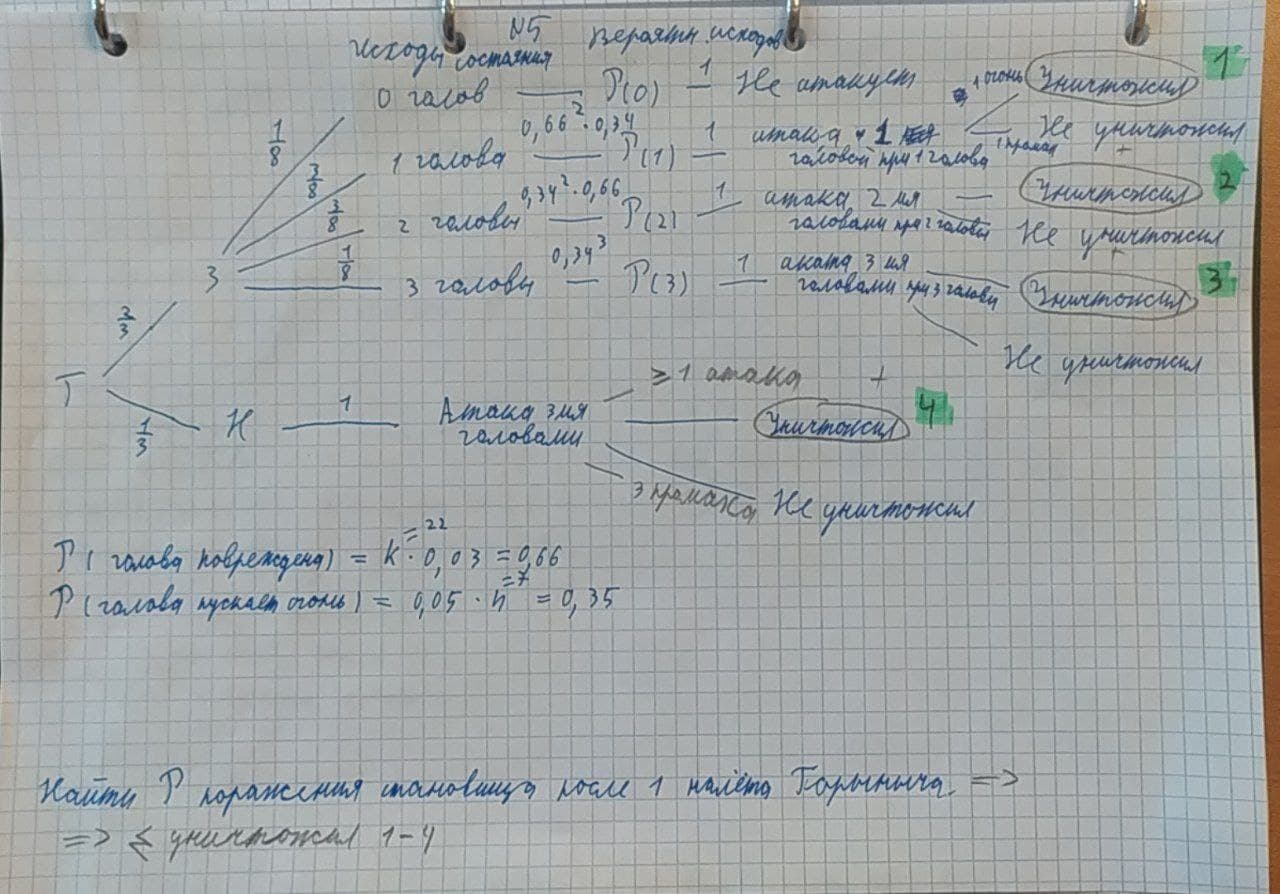 N5
Исходы состояния Вероятн. исходов
1/8 0 голов — P(0) 1 Не атакует 1 огонь Уничтожил 1
3/8 1 голова 0,66²·0,34 P(1) 1 атака 1 головой при 1 голова 1 промах Не уничтожил
+
3/8 2 головы 0,34²·0,66 P(2) 1 атака 2 мя головами при 2 головы Уничтожил 2
Не уничтожил
+
З 1/8 3 головы 0,34³ P(3) 1 аката 3 мя головами при 3 головы Уничтожил 3
Не уничтожил
2/3
Г
≥ 1 атака +
1/3 Н 1 Атака 3мя головами Уничтожил 4
3 промаха Не уничтожил
P( голова повреждена) = k · 0,03 = 0,66
=22
P(голова пускает огонь) = 0,05 · n = 0,35
=7
Найти P поражения становища после 1 налёта Горыныча. =>
=> Σ уничтожил 1-4